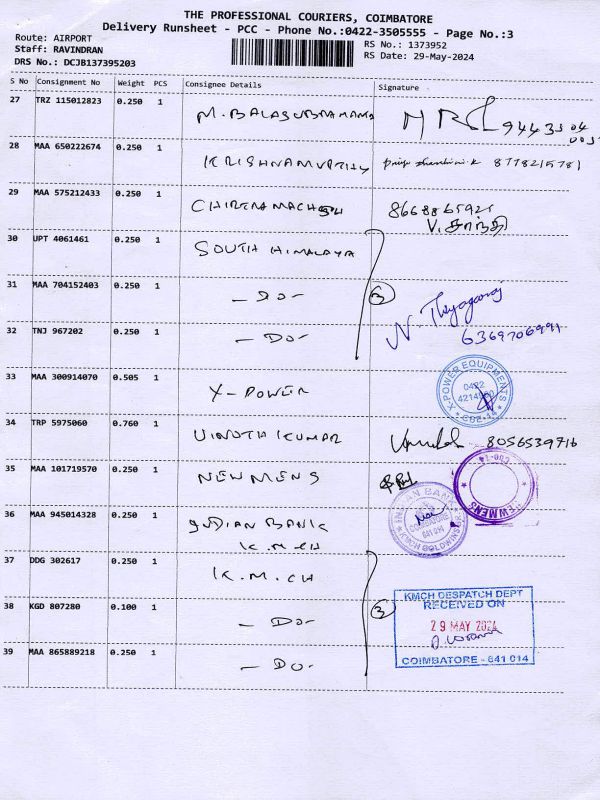 THE PROFESSIONAL COURIERS, COIMBATORE
Delivery Runsheet - PCC - Phone No.:0422-3505555 - Page No.:3
Route: AIRPORT
Staff: RAVINDRAN
DRS No.: DCJB137395203
RS No.: 1373952
RS Date: 29-May-2024
S No Consignment No Weight PCS Consignee Details Signature
27 TRZ 115012823 0.250 1 M. BALASUBRAMANI
28 MAA 650222674 0.250 1 KRISHNAMURTHY 8778215781
29 MAA 575212433 0.250 1 8668865921
V. சாந்தி
30 UPT 4061461 0.250 1 SOUTH HIMALAYA
31 MAA 704152403 0.250 1 - DO - 3 N. Thyagaraj
32 TNJ 967202 0.250 1 - DO - 6369706991
33 MAA 300914070 0.505 1 X-POWER
X-POWER EQUIPMENTS
0422
CBE-14
34 TRP 5975060 0.760 1 VINOTH KUMAR 8056539716
35 MAA 101719570 0.250 1 NEWMENS
NEWMENS
36 MAA 945014328 0.250 1 INDIAN BANK
K.M.CH
INDIAN BANK
COIMBATORE
641 014
37 DDG 302617 0.250 1 K.M.CH
38 KGD 807280 0.100 1 - DO - 3
39 MAA 865889218 0.250 1 - DO -
KMCH DESPATCH DEPT
RECEIVED ON
29 MAY 2024
COIMBATORE - 641 014